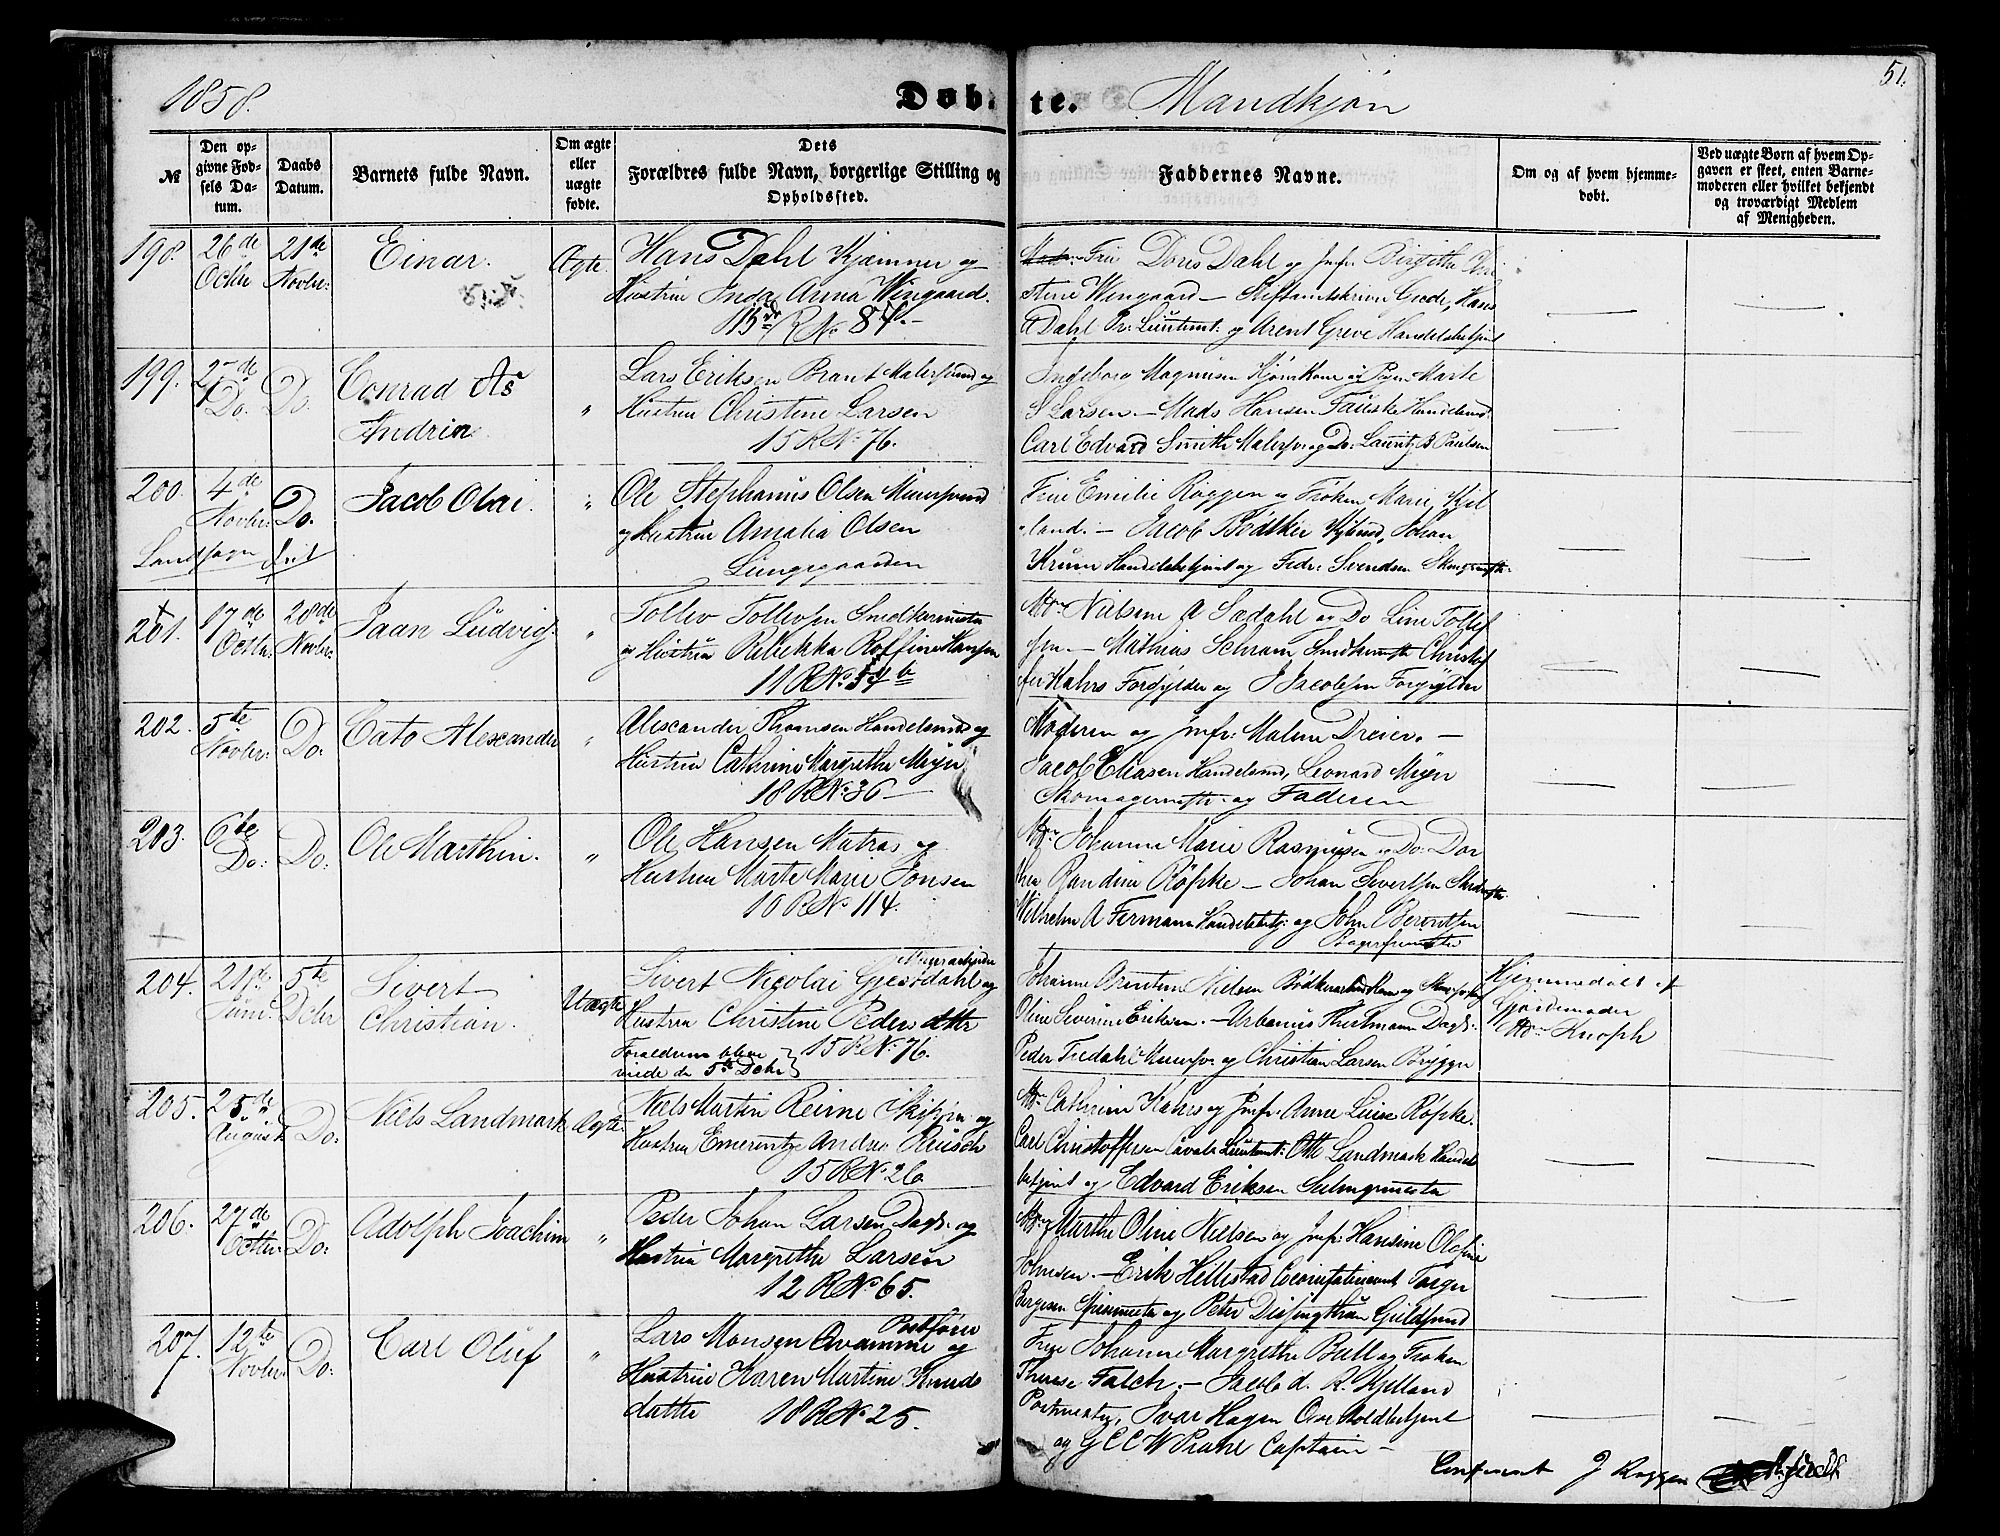 51.
1858.
Døbte. Mandkjøn
№
Den op-
givne Fød-
sels Da-
tum.
Daabs
Datum.
Barnets fulde Navn.
Om ægte
eller
uægte
fødte.
Dets
Forældres fulde Navn, borgerlige Stilling og
Opholdssted.
Faddernes Navne.
Om og af hvem hjemme-
døbt.
Ved uægte Børn af hvem Op-
gaven er skeet, enten Barne-
moderen eller hvilket bekjendt
og troværdigt Medlem
af Menigheden.
198. 26de Octbr 21de Novbr: Einar. Ægte.
Hans Dahl Kjæmner og
Hustru Inda Anna Wingaard.
15de R No 84.
Frue Doris Dahl og Jmfr: Birgitte Chri
stine Wengaard — Stiftamtskriver Giede, Hans
Dahl Pr: Lieutnt: og Arent Greve Handelsbetjent
199. 27de Do. Do. Conrad As
Andrin. "
Lars Eriksen Brant Malersvend og
Hustru Christine Larsen
15 R No. 76.
Ingeborg Magnusen Kjøn Kone og Pigen Marte
S Larsen. — Mads Hansen Fauske Handelsmd.
Carl Edvard Smith Malersv. og Do. Lauritz B Paulsen
200. 4de Novbr: Do. Jacob Olai. "
Landsogn frit
Ole Stephanus Olsen Muursvend
og Hustru Amalia Olsen
Lungegaarden
Frue Emilie Røggen og Frøken Marie Kjel
land. — Jacob Bødtker Kjøbmd, Johan
Krum Handelsbetjent og Fedr: Svendsen
201. 17de Octbr. 28de Novbr: Jaan Ludvig. "
Tollev Tollevsen Smedkermester
og Hustru Rebekka Roffine Hansen
11 R No. 54 b
Md. Nielsine A Sædahl og Do Line Tollef
sen. — Mathias Schram Smedkermstr Christof
fer Kahrs Forgylder og J Jacobsen Forgylder
202. 5te Novbr: Do. Cato Alexander "
Alexander Thomsen Handelsmd og
Hustru Cathrine Margrethe Meyer
18 R No. 36 —
Moderen og Jmfr: Malene Dreier. —
Jacob Eliasen Handelsmd, Leonard Meyer
Skomagermstr. og Faderen
203. 6te Do: Do: Ole Marthin. "
Ole Hansen Matros og
Hustru Marte Marie Jonsen
10 R No 114.
Md. Johanne Marie Rasmusen og Do: Dor
thea Randine Røpke — Johan Sivertsen
Wilhelm A Fermann Handelsbetj: og John Berentsen
Bagersvend
204. 21de Juni 5te Debr Sivert
Christian. Uægte
Sivert Nicolai Gjesdahl og
Hustru Christine Pedersdatter
Forældrene bleve
viede d. 5te Debr } 15 R No. 76.
Johanne Nielsen Bødker Kone og
Oline Severine Eriksen. — Urbanus Hertmann Dags.
Peder Fredahl Muursv. og Christian Larsen Brygger
Hjemmedøbt af
Gjordemoder
Md. Knoph
205. 25de August Do: Niels Landmark Ægte.
Niels Martin Reime Skipper og
Hustru Emerentze Andrea Reusch
15 R No. 26.
Md. Cathrine Kahrs og Jmfr: Anne Luise Røpke.
Carl Christoffersen Caval: Lieutent: Otto Landmark Handels
betjent og Edvard Eriksen
206. 27de Octbr. Do: Adolph Joachim "
Peder Johan Larsen Dags. og
Hustru Margrethe Larsen
12 R No. 65.
Md. Marthe Oline Nielsen og Jmfr: Hansine Olesine
Johnsen. — Erik Hillestad
Bergesen og Peter
207. 12te Novbr: Do: Carl Oluf "
Lars Monsen Qvamme og
Hustru Karen Martine Knuds
datter 18 R No. 25.
Frue Johanne Margrethe Bull og Frøken
Therese Falch. — Jacob d. R. Kjelland
Postmester, Ivar Hagen Over Toldbetjent
og G C C W Prahl Captain —
Confereret J Røggen